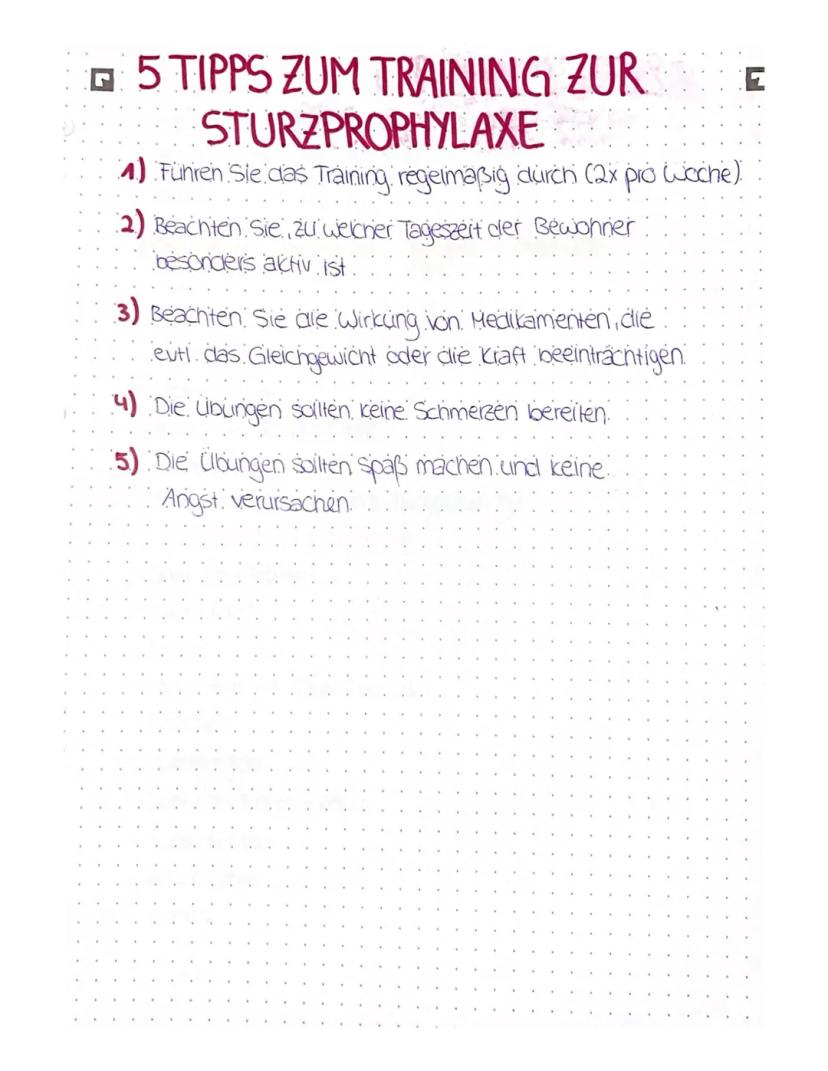 5 TIPPS ZUM TRAINING ZUR
STURZPROPHYLAXE
1) Führen Sie das Training regelmäßig durch (2x pro Woche).
2) Beachten Sie, zu welcher Tageszeit der Bewohner
besonders aktiv ist.
3) Beachten Sie die Wirkung von Medikamenten, die
evtl. das Gleichgewicht oder die Kraft beeinträchtigen.
4) Die Übungen sollten keine Schmerzen bereiten.
5) Die Übungen sollten Spaß machen und keine
Angst verursachen.